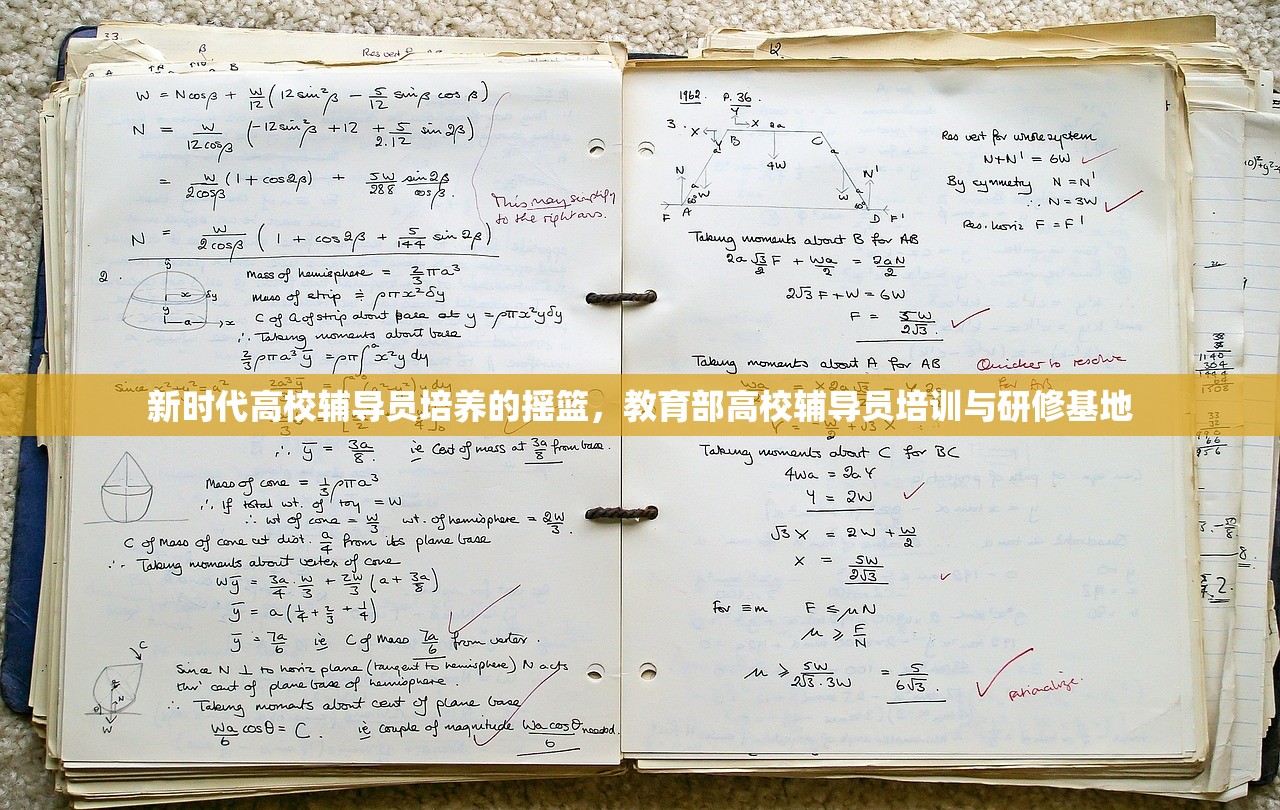 33.
β
Res vert
W = N cos β + W/12 (12 sin² β − 5/12 sin β cos β)
N = W/12 cos β (−12 sin² β + 12 + 5/2.12 sin 2β)
= W/2 cos β (1 + cos 2β) + 5W/288 sin 2β/cos β.
This may simplify
to the right ans.
N = W/2 cos β (1 + cos 2β + 5/144 sin 2β)
2.
y
x δy
y
a x
Mass of hemisphere = 2/3 πa³
Mass of strip ≑ ρπx²δy
C of G of strip about base at y = ρπx²yδy
∴ Taking moments about base
2/3 ρπa³ ȳ = ρπ∫ᵃ₀ x²y dy
since x² + y² = a²
新时代高校辅导员培养的摇篮，教育部高校辅导员培训与研修基地
∴ ȳ = 3a/8 ie Cent of mass at 3a/8 from base.
Mass of cone = 1/3 ρπa³
∴ If total wt. of toy = W
∴ wt of cone = W/3 wt. of hemisphere = 2W/3.
C of Mass of cone at dist. a/4 from its plane base
∴ Taking moments about vertex of cone
Wȳ = 3a/4 . W/3 + 2W/3 (a + 3a/8)
ȳ = a(1/4 + 2/3 + 1/4)
ȳ = 7a/6 ie C of Mass 7a/6 from vertex.
C
N
θ
W
Since N ⊥ to horiz plane (tangent to hemisphere) N acts
thro' cent of plane base of hemisphere.
∴ Taking moments about cent of plane base
Wa/6 cos θ = C. ie couple of magnitude Wa cos θ/6 needed.
12
1962. P. 36.
3.
Y
X 2a
X B C
4W
N N'
a W W a
60° 60°
F A D F'
Res vert for whole system
N + N' = 6W
By symmetry N = N'
∴ N = 3W
Res. horiz F = F'
Taking moments about B for AB
2a √3/2 F + Wa/2 = 2aN/2
2√3 F + W = 6W
F = 5W/2√3.
Taking moments about A for AB
Quicker to resolve
for AB
Taking moments about C for BC
4Wa = 2aY
Y = 2W
√3 X = 2W + W/2
X = 5W/2√3
For ≡m F ≤ μN
μ ≥ F/N
μ ≥ 5W/2√3.3W = 5/6√3.
rationalize.